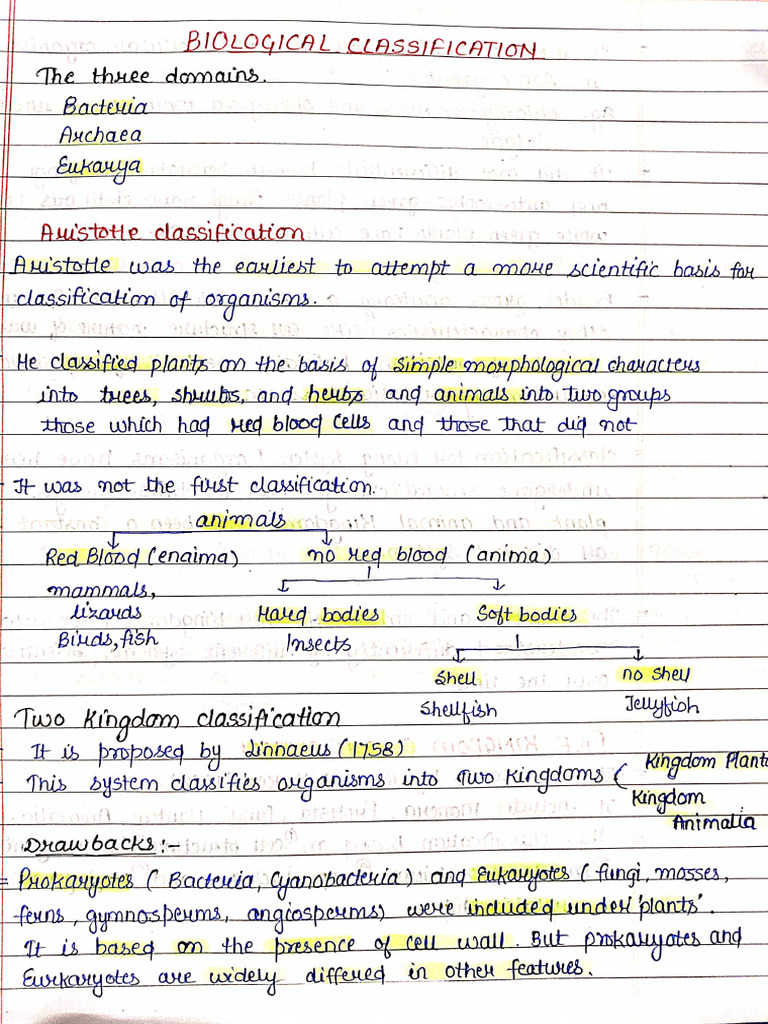 BIOLOGICAL CLASSIFICATION
The three domains.
Bacteria
Archaea
Eukarya
Aristotle classification
Aristotle was the earliest to attempt a more scientific basis for
classification of organisms.
He classified plants on the basis of simple morphological characters
into trees, shrubs, and herbs and animals into two groups
those which had red blood cells and those that did not
- It was not the first classification.
animals
Red Blood (enaima) no red blood (anima)
mammals,
lizards Hared bodies Soft bodies
Birds, fish Insects
Shell no shell
Shellfish Jellyfish
Two Kingdom classification
- It is proposed by Linnaeus (1758)
- This system classifies organisms into Two Kingdoms ( Kingdom Planta
Kingdom
Animalia
Drawbacks :-
= Prokaryotes ( Bacteria, Cyanobacteria ) and Eukaryotes ( fungi, mosses,
ferns, gymnosperms, angiosperms) were included under 'plants'.
It is based on the presence of cell wall. But prokaryotes and
Eurkaryotes are widely differed in other features.